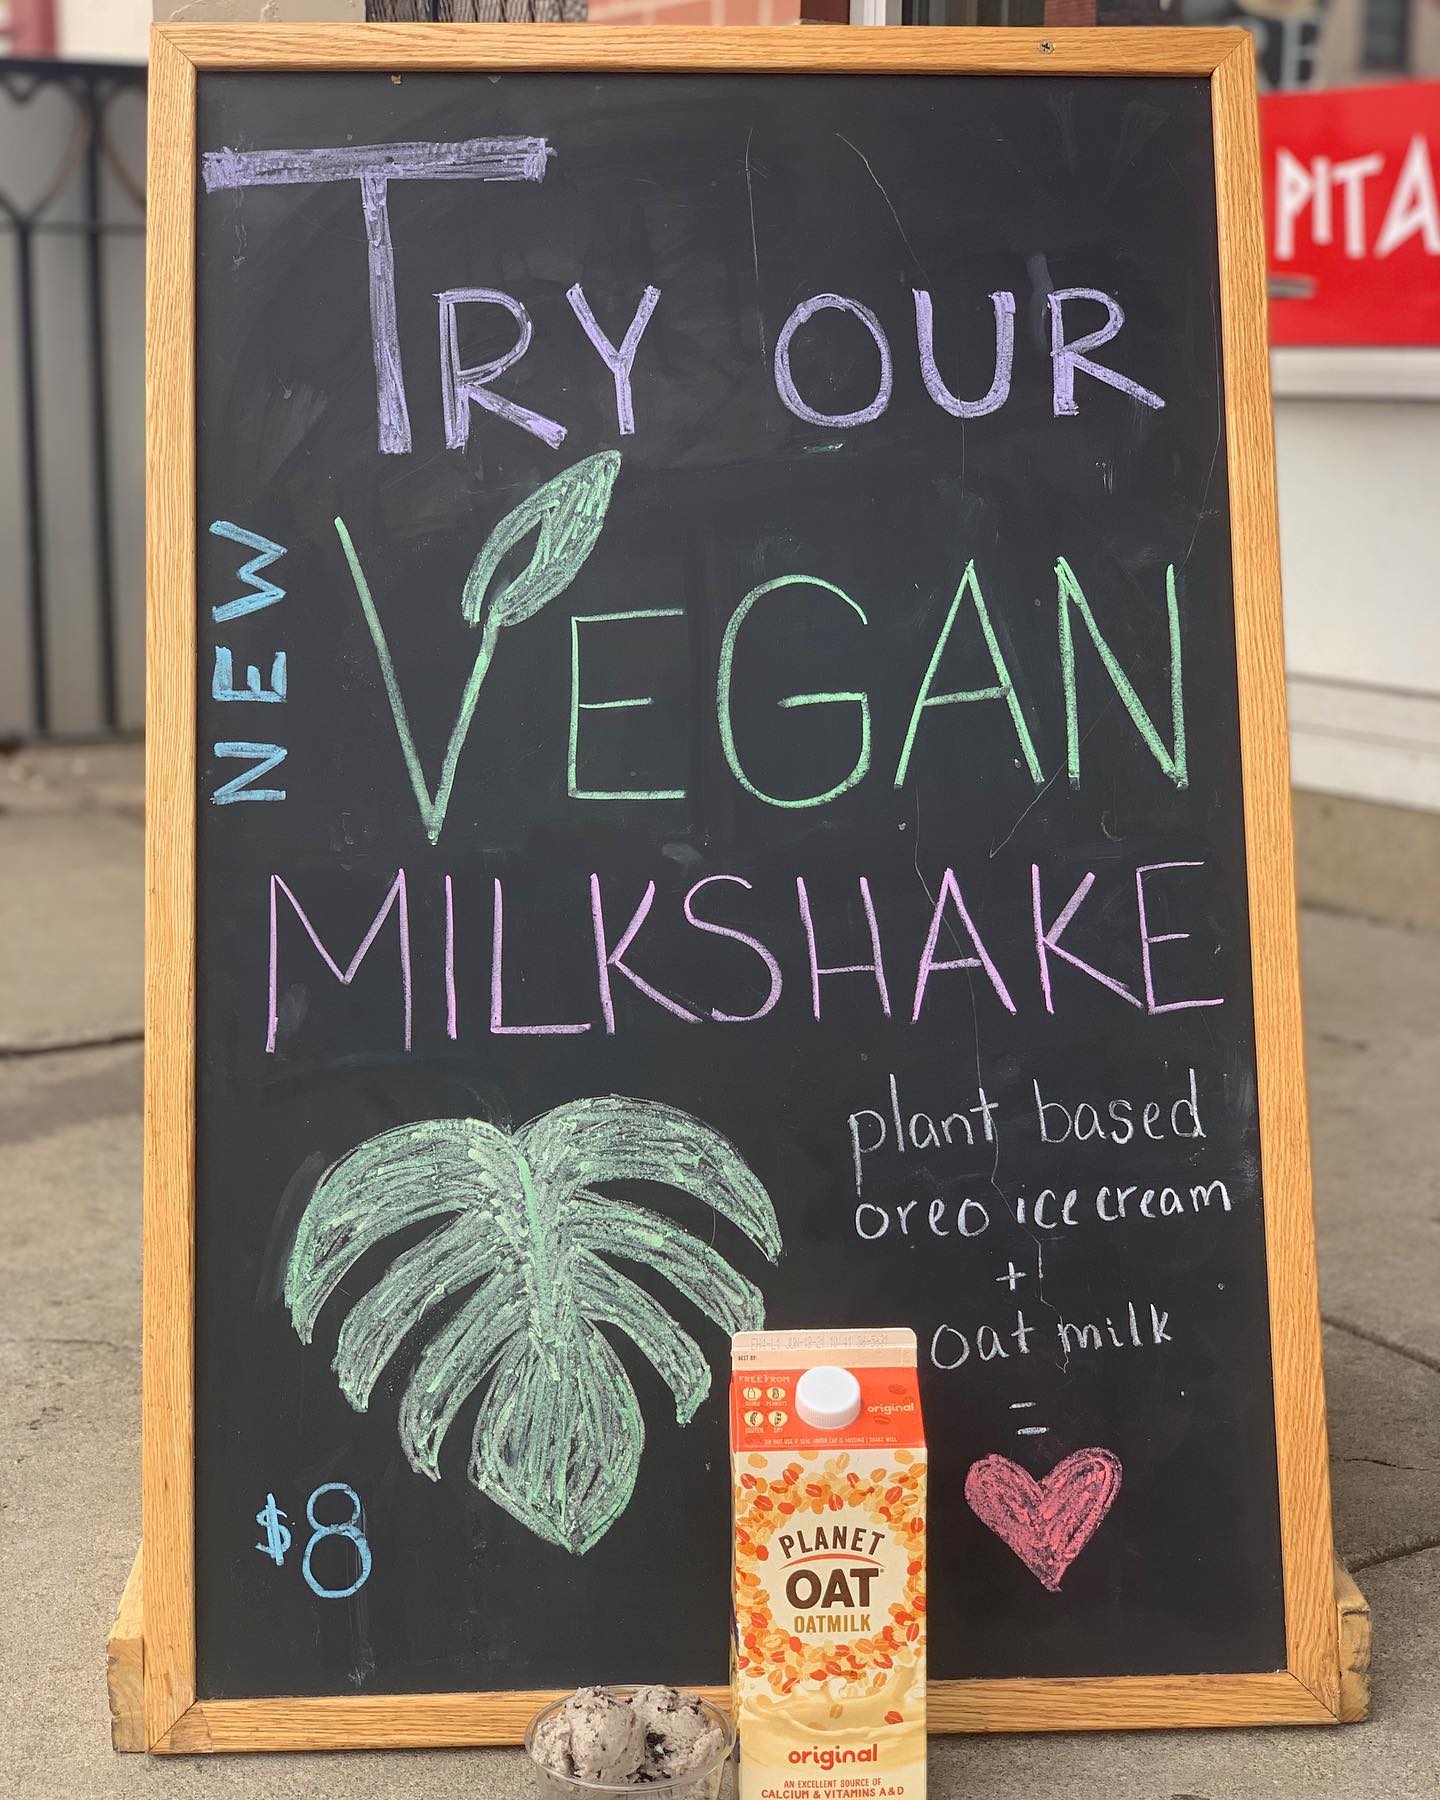 TRY OUR
NEW
VEGAN
MILKSHAKE
plant based
oreo ice cream
+
oat milk
=
$8
PITA
BEST BY:
FREE FROM
DAIRY PEANUTS
GLUTEN SOY
original
PLANET
OAT
OATMILK
original
AN EXCELLENT SOURCE OF
CALCIUM & VITAMINS A & D